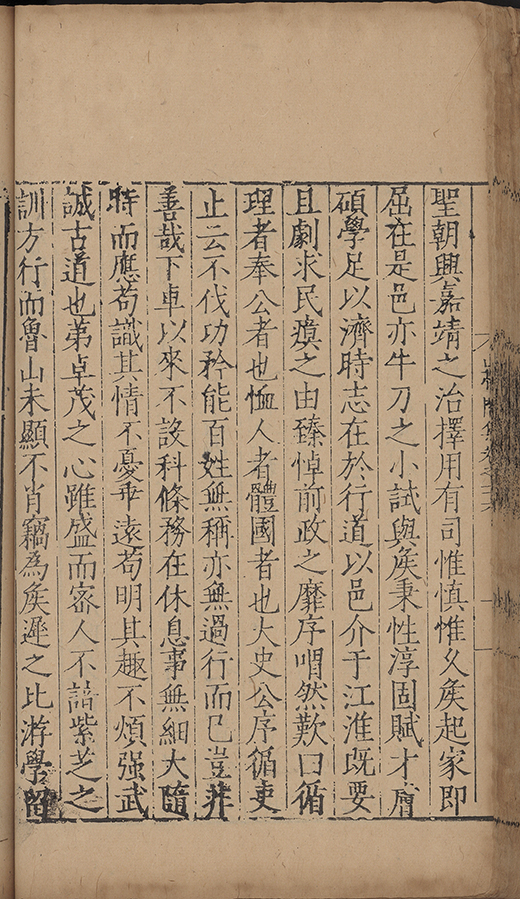 聖朝興嘉靖之治擇用有司惟慎惟久矦起家即
屈在是邑亦牛刀之小試與矦秉性淳固賦才膚
碩學足以濟時志在於行道以邑介于江淮既要
且劇求民瘼之由臻悼前政之靡序喟然歎曰循
理者奉公者也恤人者體國者也大史公序循吏
止云不伐功矜能百姓無稱亦無過行而已豈非
善哉下車以來不設科條務在休息事無細大隨
時而應苟識其情不憂乖遠苟明其趣不煩强武
誠古道也苐卓茂之心雖盛而宻人不諳紫芝之
訓方行而魯山未顯不肖竊為矦遲之比游學